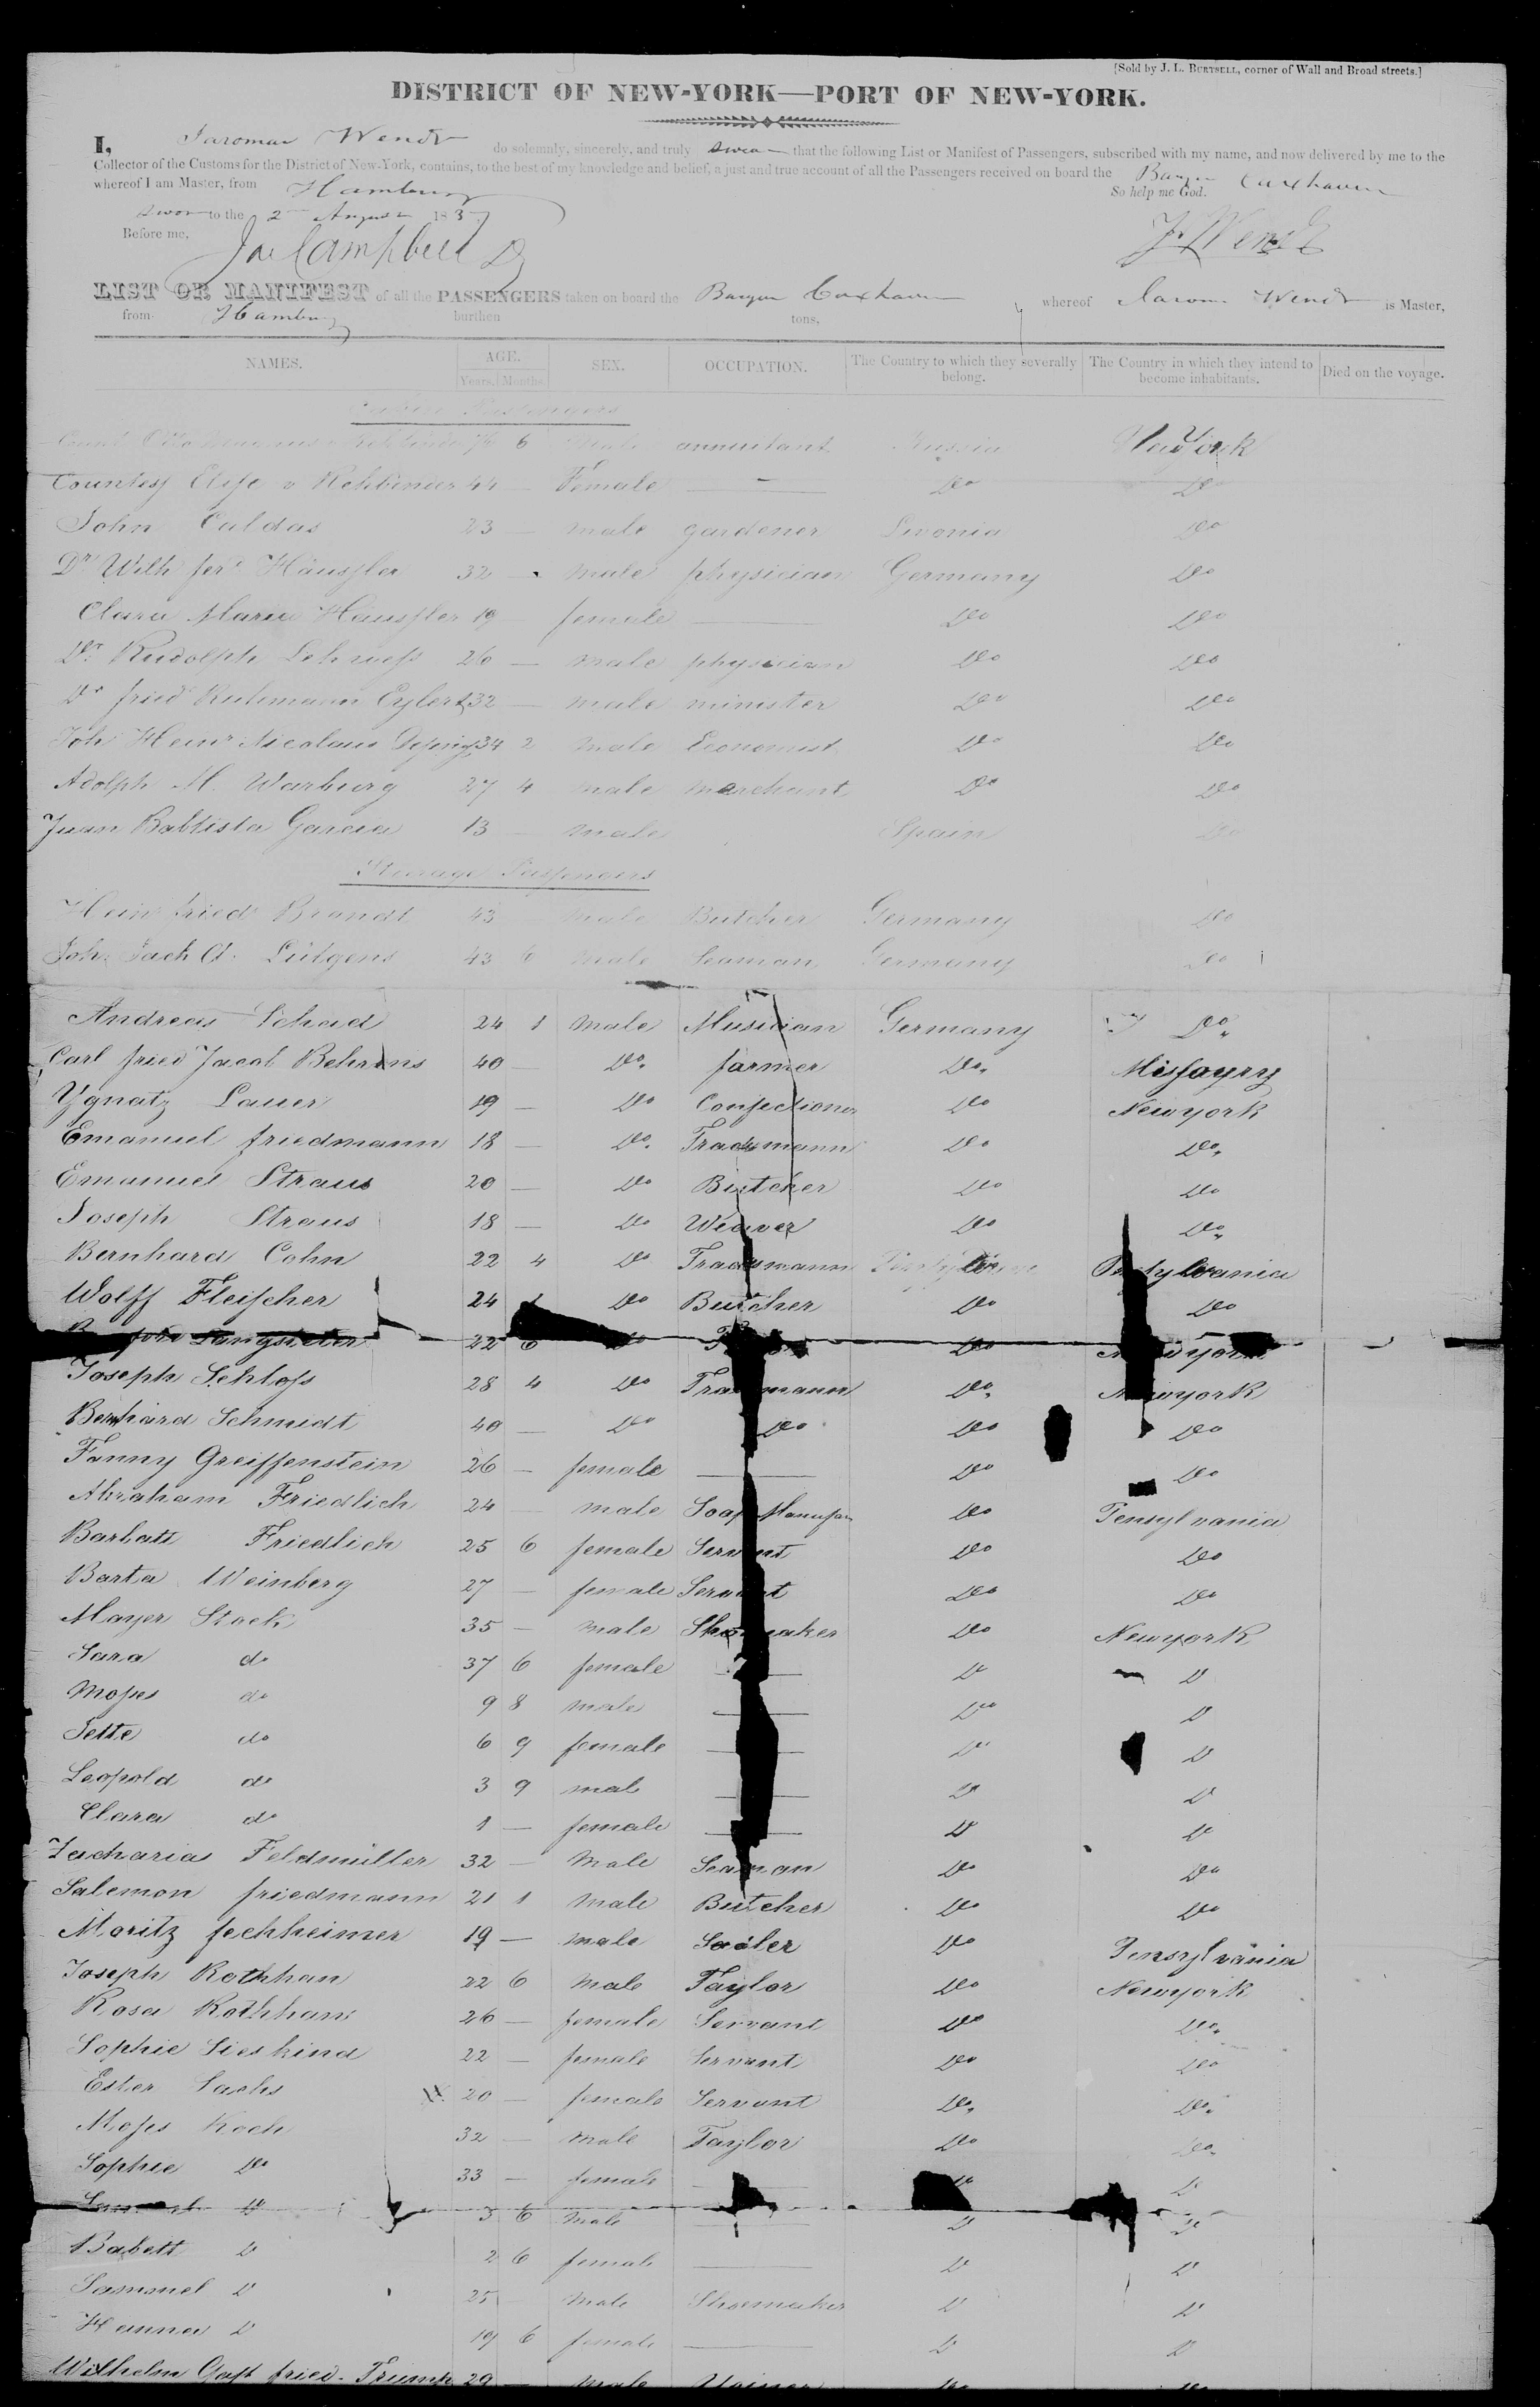 [Sold by J. L. BURTSELL, corner of Wall and Broad streets.]
DISTRICT OF NEW-YORK—PORT OF NEW-YORK.
I, Jaromar Wendt do solemnly, sincerely, and truly swear that the following List or Manifest of Passengers, subscribed with my name, and now delivered by me to the
Collector of the Customs for the District of New-York, contains, to the best of my knowledge and belief, a just and true account of all the Passengers received on board the Barque Cuxhaven
whereof I am Master, from Hamburg So help me God.
Sworn to the 2 August 1837
Before me, J. Wendt
Campbell
LIST OR MANIFEST of all the PASSENGERS taken on board the Barque Cuxhaven whereof Jarom. Wendt is Master,
from Hamburg burthen tons,
NAMES. AGE. SEX. OCCUPATION. The Country to which they severally belong. The Country in which they intend to become inhabitants. Died on the voyage.
Years. Months.
Cabin Passengers
Count 6 male annuitant Russia Newyork
Countess Elise v Rehbinder 44 — Female — Do Do
John Caldas 23 — male gardener Livonia Do
Dr Wilh ferd Häussler 32 - male physician Germany Do
Clara Maria Häussler 19 female — Do Do
Dr Rudolph Lehwess 26 — male physician Do Do
Dr fried Ruhmann Eylert 32 — male minister Do Do
Joh Heinr Nicolaus 34 2 male Economist Do Do
Adolph M. Warburg 27 4 male merchant Do Do
Juan Babtista Garcia 13 male Spain Do
Steerage Passengers
Heinr fried Brandt 43 male Butcher Germany Do
Joh: Jach A: Lütgens 43 6 male Seaman Germany Do
Andreas Schad 24 1 male Musician Germany Do
Carl fried Jacob Behrens 40 — Do. farmer Do. Missoyry
Ygnatz Lauer 19 — Do Confectioner Do Newyork
Emanuel friedmann 18 — Do. Tradsmann Do Do.
Emanuel Straus 20 — Do Butcher Do Do
Joseph Straus 18 — Do Weaver Do Do.
Bernhard Cohn 22 4 Do Tradsmann
Wolff Fleischer 24 1 Do Butcher Do Do
22 6 Do Do Newyork
Joseph Schloss 28 4 Do Tradsmann Do. Newyork
Bernhard Schmidt 40 — Do Do Do Do
Fanny Greiffenstein 26 — female — Do Do
Abraham Friedlich 24 — male Soap Manufac Do Pensylvania
Barbatt Friedlich 25 6 female Servant Do Do
Barta Weinberg 27 — female Servant Do Do
Mayer Stock 35 — male Shoemaker Do Newyork
Sara do 37 6 female — Do Do
Moses do 9 8 male — Do Do
Jette do 6 9 female — Do Do
Leopold do 3 9 male — Do Do
Clara do 1 — female — Do Do
Zacharias Feldmüller 32 — Male Seaman Do Do
Salemon friedmann 21 1 male Butcher Do Do
Moritz fechheimer 19 — male Sadler Do Pensylvania
Joseph Rothhan 22 6 male Taylor Do Newyork
Rosa Rothhan 26 — female Servant Do Do.
Sophie Sieskind 22 — female Servant Do Do
Ester Sachs 20 — female Servant Do. Do.
Moses Koch 32 — male Taylor Do Do.
Sophie Do 33 — female — Do Do
Do 3 6 male — Do Do
Babett Do 2 6 female — Do Do
Sammuel Do 25 male Shoemaker Do Do
Hanna Do 19 6 female — Do Do
Wilhelm Gust fried. Trump 29 — male Do Do